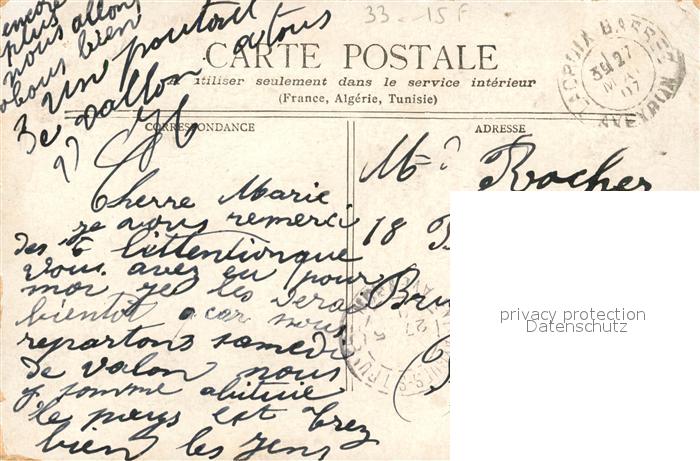 encore
plus
nous allons
obous bien
un poutou
a tous
De vallon
33 - 15 F
CARTE POSTALE
utiliser seulement dans le service intérieur
(France, Algérie, Tunisie)
LACROIX BARREZ
27
MAI
07
AVEYRON
CORRESPONDANCE
ADRESSE
Cherre Marie
je vous remerci
des
l'ettentionque
vous avez eu pour
moi je les verai
bientôt car nous
repartons samedi
de valon nous
y somme abituie
le pays est trez
bien les jens
M
Rocher
18
Bru
privacy protection
Datenschutz